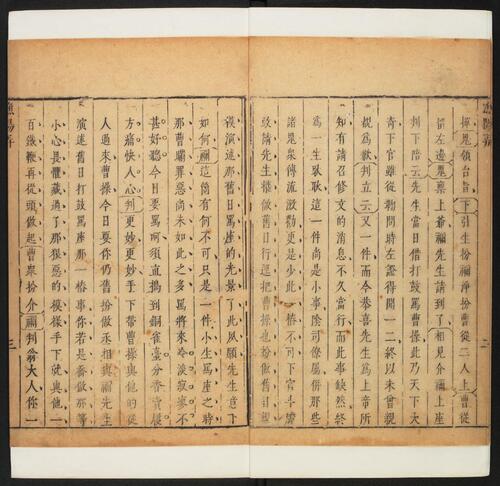 漁陽弄
二
揮鬼領台旨下引生扮禰淨扮曹從二人上曹從
留左邊鬼稟上爺禰先生請到了相見介禰上座
判下陪云先生當日借打鼓罵曹操此乃天下大
奇下官雖從鞫問時左證得聞一二終以未曾親
覩為歉判立云又一件而今恭喜先生為上帝所
知有請召修文的消息不久當行而此事缺然終
為一生耿耿這一件尚是小事陰司僚屬併那些
諸鬼衆傳流激勸更是少此一樁不可下官斗膽
敢請先生權做舊日行逕把曹操也扮做舊日規
模演述那舊日罵座的光景了此夙願先生意下
如何禰這箇有何不可只是一件小生罵座之時
那曹瞞罪惡尚未如此之多罵將來冷淡寂寥不
甚好聽今日要罵呵須直搗到銅雀臺分香賣履
方痛快人心判更妙更妙手下帶曹操與他的從
人過來曹操今日要你仍舊扮做丞相與禰先生
演述舊日打鼓罵座那一樁事你若是喬做那等
小心畏懼藏過了那狠惡的模樣手下就與他一
百鐵鞭再從頭做起曹衆扮介禰判翁大人你一
漁陽弄
三